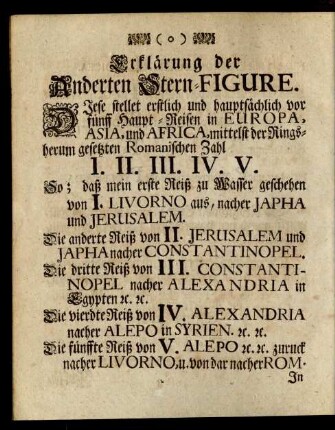 ( o )
Erklärung der
Anderten Stern-FIGURE.
DIese stellet erstlich und hauptsächlich vor
fünff Haupt-Reisen in EUROPA,
ASIA, und AFRICA, mittelst der Rings-
herum gesetzten Romanischen Zahl
I. II. III. IV. V.
So; daß mein erste Reiß zu Wasser geschehen
von I. LIVORNO aus, nacher JAPHA
und JERUSALEM.
Die anderte Reiß von II. JERUSALEM und
JAPHA nacher CONSTANTINOPEL.
Die dritte Reiß von III. CONSTANTI-
NOPEL nacher ALEXANDRIA in
Egypten ꝛc. ꝛc.
Die vierdte Reiß von IV. ALEXANDRIA
nacher ALEPO in SYRIEN. ꝛc. ꝛc.
Die fünffte Reiß von V. ALEPO ꝛc. ꝛc. zuruck
nacher LIVORNO, u. von dar nacher ROM.
In